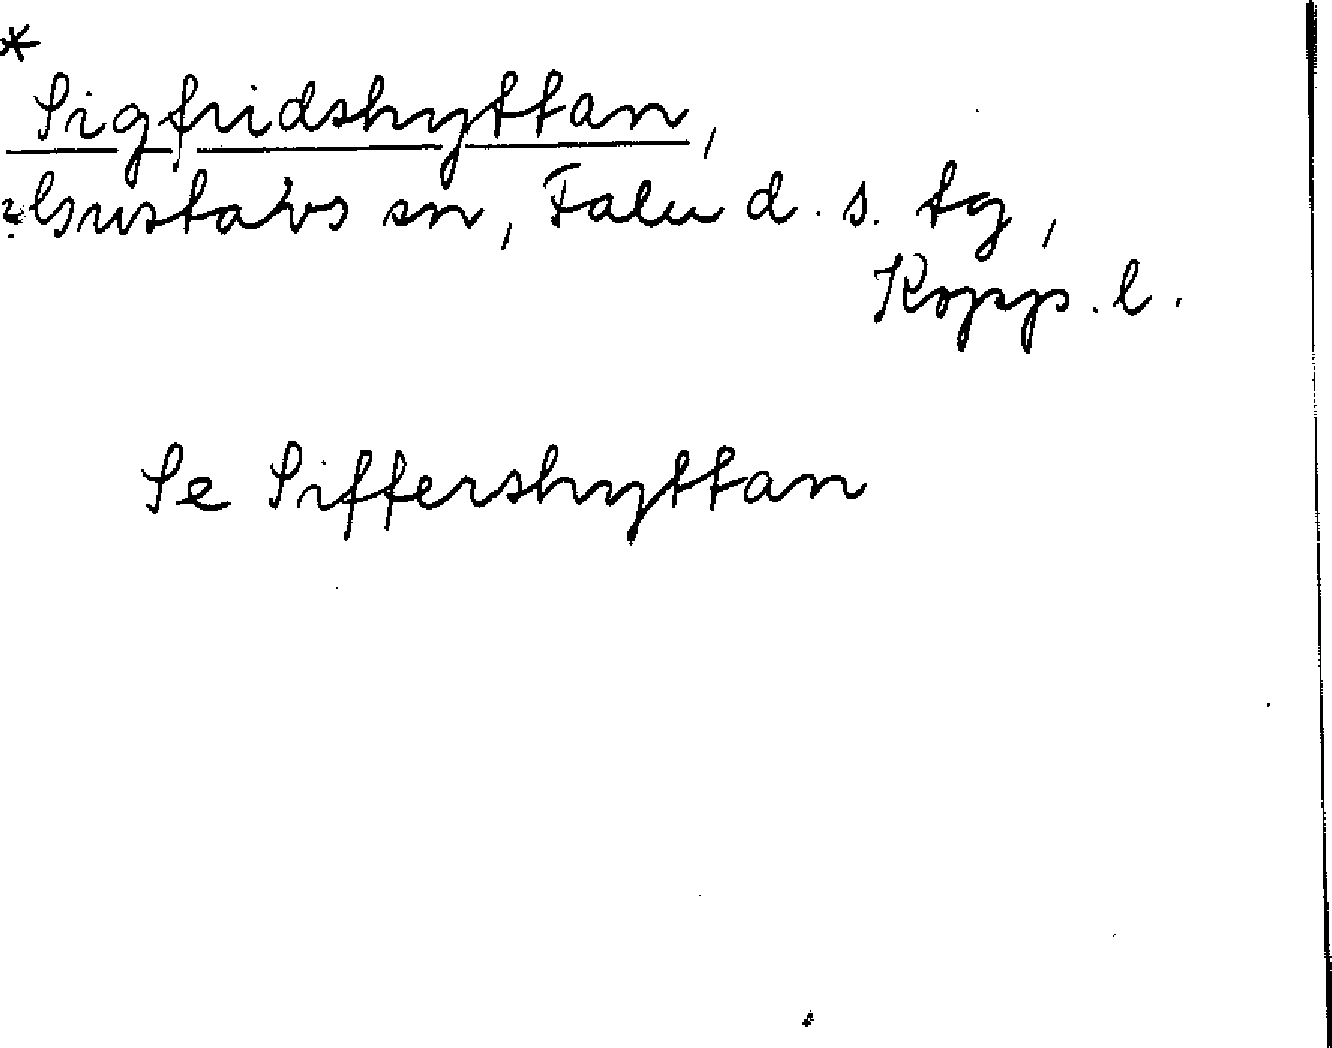 *
Sigfridshyttan,
? Gustavs sn, Falu d. s. tg,
Kopp. l.
Se Siffershyttan